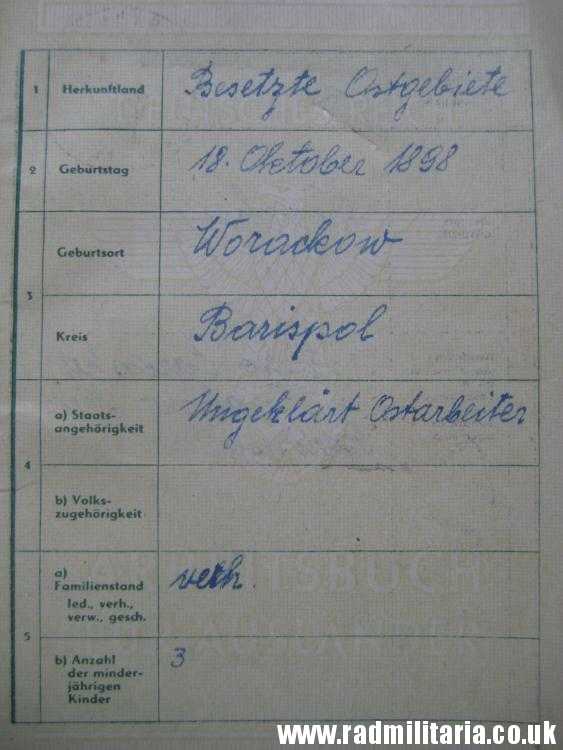 1 Herkunftland Besetzte Ostgebiete
2 Geburtstag 18. Oktober 1898
Geburtsort Worackow
3
Kreis Barispol
a) Staats-
angehörigkeit Ungeklärt Ostarbeiter
4
b) Volks-
zugehörigkeit
a)
Familienstand verh.
led., verh.,
verw., gesch.
5
b) Anzahl 3
der minder-
jährigen
Kinder
ARBEITSBUCH
www.radmilitaria.co.uk